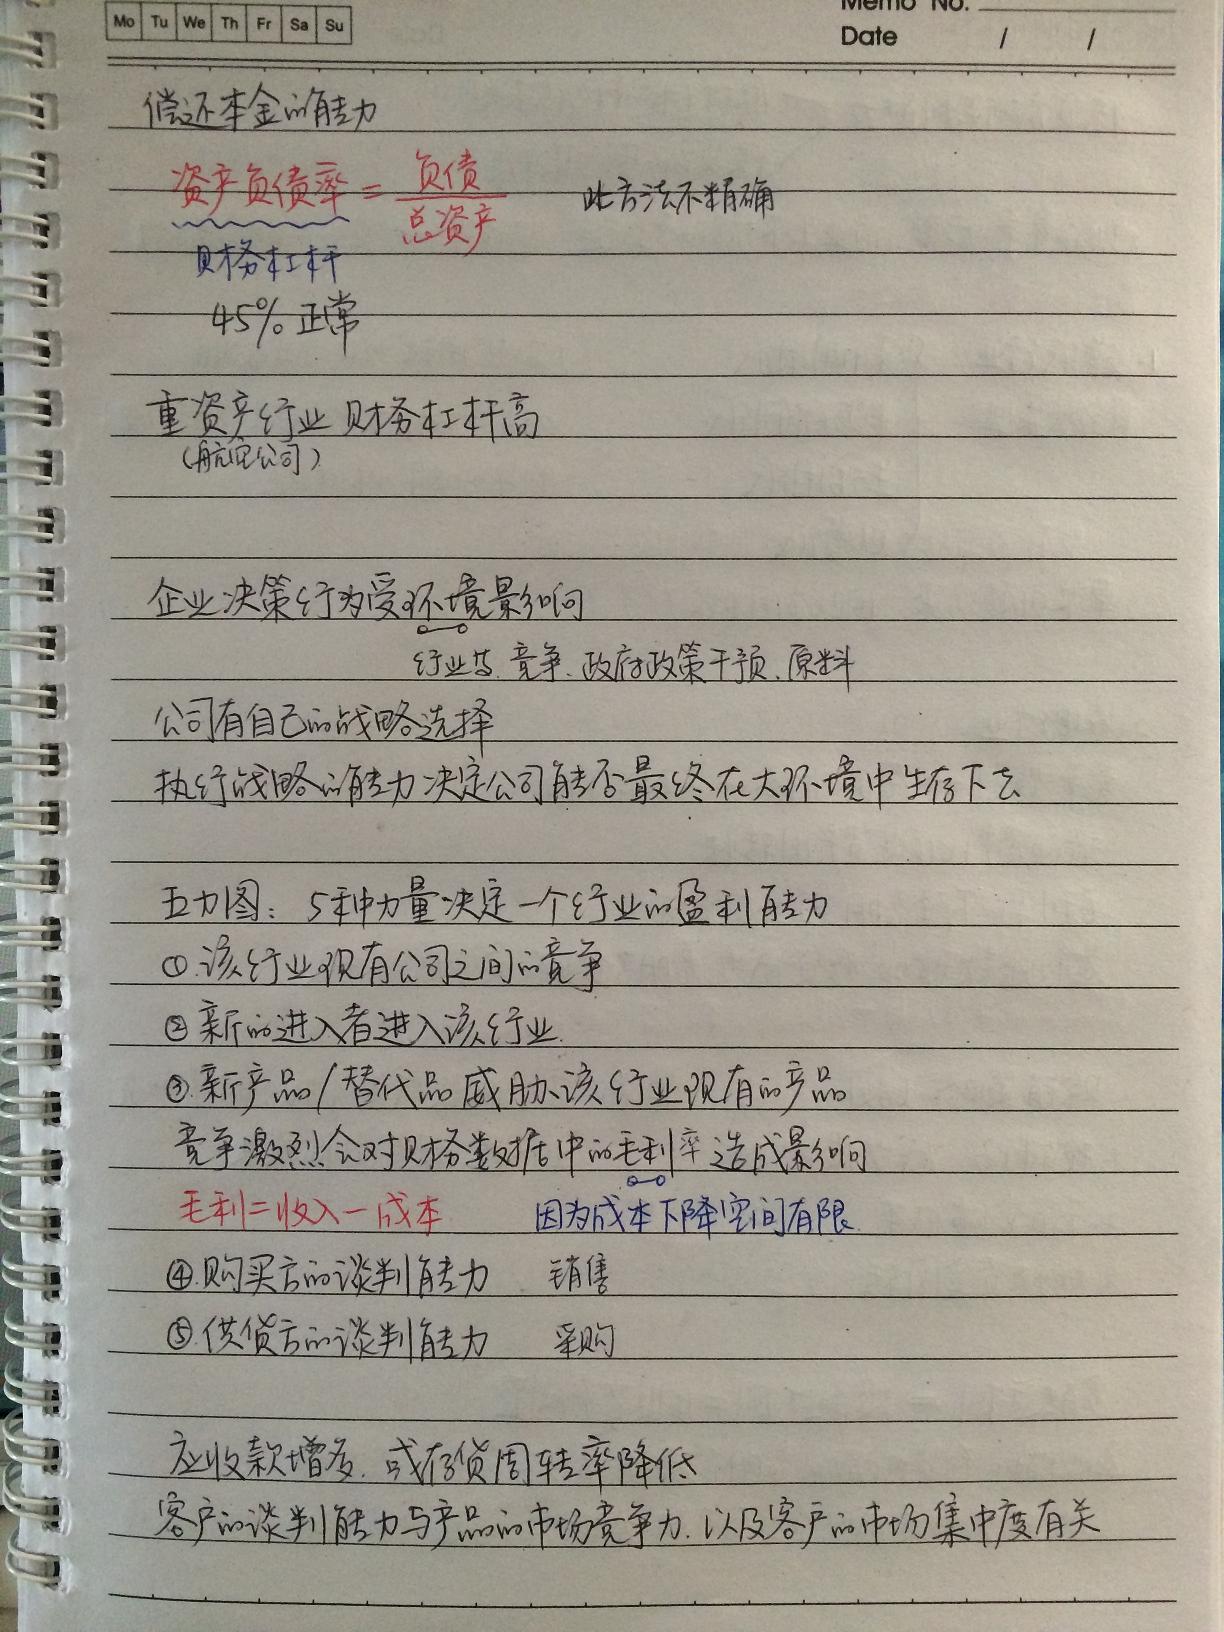 Mo Tu We Th Fr Sa Su
Memo No.
Date / /
偿还本金的能力
资产负债率 = 负债 / 总资产 此方法不精确
财务杠杆
45% 正常
重资产行业 财务杠杆高
(航空公司)
企业决策行为受环境影响
行业 竞争、政府政策干预、原料
公司有自己的战略选择
执行战略的能力决定公司能否最终在大环境中生存下去
五力图：5种力量决定一个行业的盈利能力
①.该行业现有公司之间的竞争
②新的进入者进入该行业.
③.新产品/替代品威胁该行业现有的产品
竞争激烈会对财务数据中的毛利率造成影响
毛利=收入-成本 因为成本下降空间有限.
④.购买方的谈判能力 销售
⑤.供货方的谈判能力 采购
应收款增多、或存货周转率降低
客户的谈判能力与产品的市场竞争力、以及客户的市场集中度有关